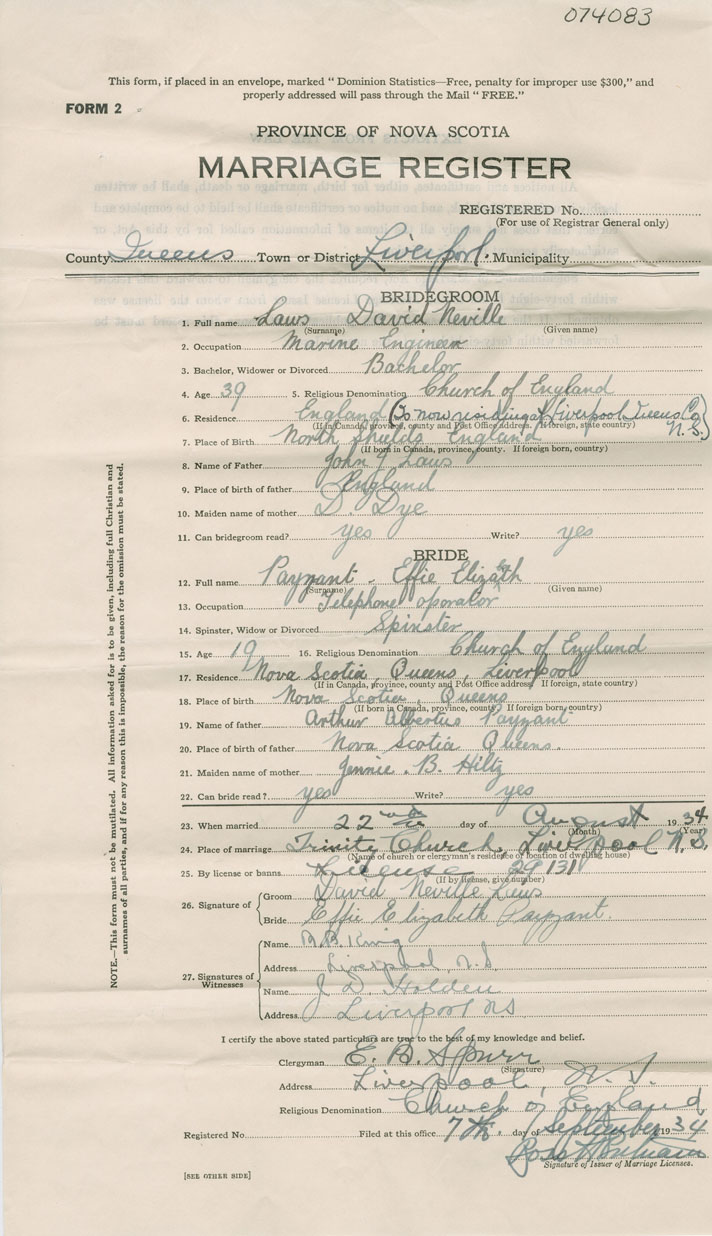 074083
This form, if placed in an envelope, marked " Dominion Statistics—Free, penalty for improper use $300," and
properly addressed will pass through the Mail " FREE."
FORM 2
PROVINCE OF NOVA SCOTIA
MARRIAGE REGISTER
REGISTERED No.
(For use of Registrar General only)
County Queens Town or District Liverpool. Municipality
BRIDEGROOM
1. Full name Laws David Neville
(Surname) (Given name)
2. Occupation Marine Engineer
3. Bachelor, Widower or Divorced Bachelor
4. Age 39 5. Religious Denomination Church of England
6. Residence England (Is now residing at Liverpool Queens Co N.S.)
(If in Canada, province, county and Post Office address. If foreign, state country)
7. Place of Birth North Shields England
(If born in Canada, province, county. If foreign born, country)
8. Name of Father John J Laws
9. Place of birth of father England
10. Maiden name of mother D. Dye
11. Can bridegroom read? yes Write? yes
BRIDE
12. Full name Payzant. Effie Elizabeth
(Surname) (Given name)
13. Occupation Telephone oporator
14. Spinster, Widow or Divorced Spinster
15. Age 19 16. Religious Denomination Church of England
17. Residence Nova Scotia, Queens, Liverpool
(If in Canada, province, county and Post Office address If foreign, state country)
18. Place of birth Nova Scotia, Queens
(If born in Canada, province, county. If foreign born, country)
19. Name of father Arthur Albertus Payzant
20. Place of birth of father Nova Scotia Queens.
21. Maiden name of mother Jennie. B. Hiltz
22. Can bride read? yes Write? yes
23. When married 22nd day of August 1934
(Month) (Year)
24. Place of marriage Trinity Church, Liverpool N.S.
(Name of church or clergyman's residence or location of dwelling house)
25. By license or banns License 29131
(If by license, give number)
26. Signature of
Groom David Neville Laws
Bride Effie Elizabeth Payzant.
27. Signatures of Witnesses
Name B.B. King
Address Liverpool N.S.
Name J D. Holden
Address Liverpool NS
I certify the above stated particulars are true to the best of my knowledge and belief.
Clergyman E. B. Spurr
(Signature)
Address Liverpool, N.S.
Religious Denomination Church of England,
Registered No. Filed at this office 7th. day of September 1934
Signature of Issuer of Marriage Licenses.
[SEE OTHER SIDE]
NOTE.—This form must not be mutilated. All information asked for is to be given, including full Christian and
surnames of all parties, and if for any reason this is impossible, the reason for the omission must be stated.